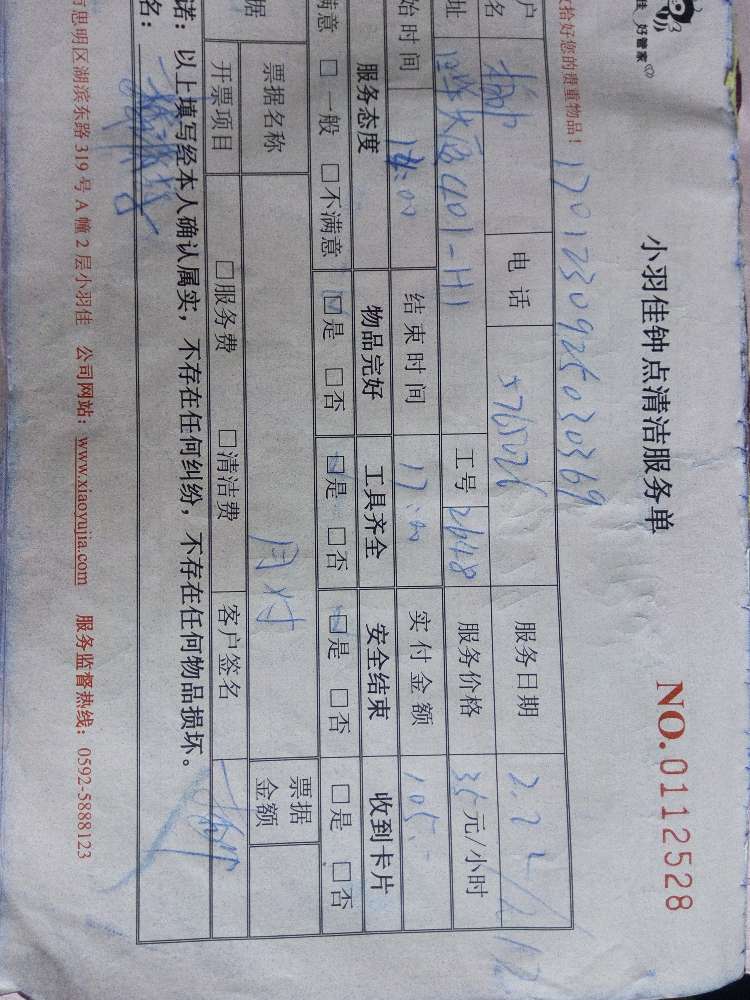 佳 好管家
拾好您的贵重物品！
小羽佳钟点清洁服务单
NO. 0112528
17012309250230369
户名 电话 服务日期
址 401-H1 工号 2648 服务价格 35元/小时
始时间 14:00 结束时间 17:00 实付金额 105.
服务态度 物品完好 工具齐全 安全结束 收到卡片
满意 □一般 □不满意 ☑是 □否 ☑是 □否 ☑是 □否 □是 □否
据 票据名称 月付 票据金额
开票项目 □服务费 □清洁费 客户签名
诺：以上填写经本人确认属实，不存在任何纠纷，不存在任何物品损坏。
名：
市思明区湖滨东路319号A幢2层小羽佳 公司网站：www.xiaoyujia.com 服务监督热线：0592-5888123